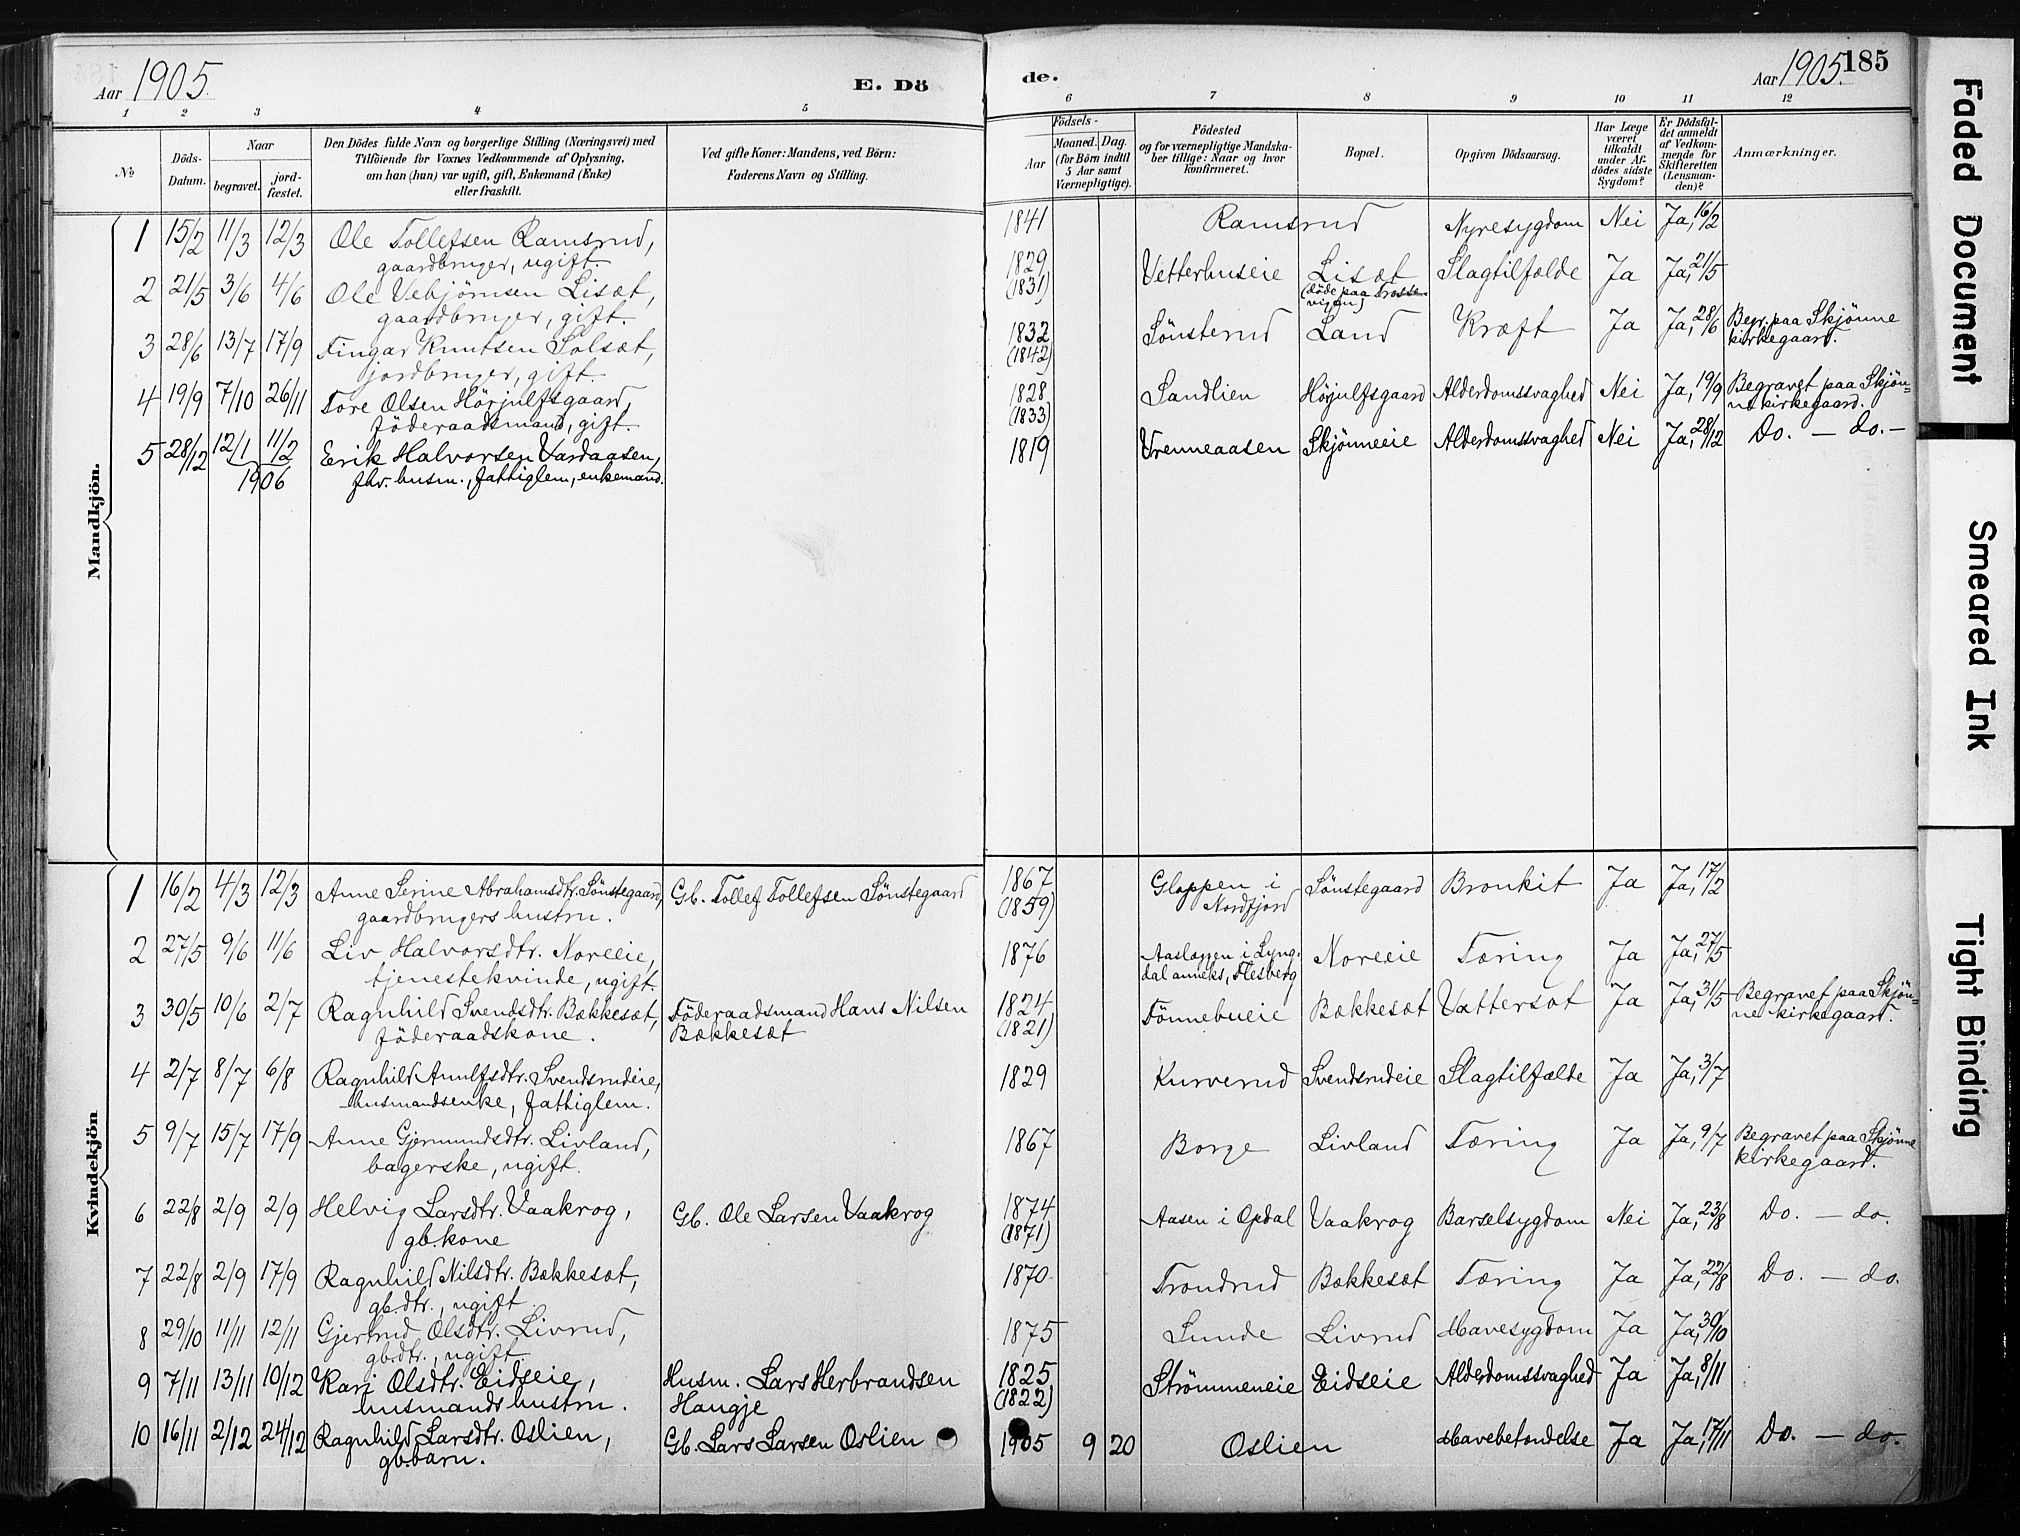 Aar 1905.
E. Dö
de.
Aar 1905.
185
1 2 3 4 5 6 7 8 9 10 11 12
№
Döds-Datum.
Naar
begravet.
jord-fæstet.
Den Dödes fulde Navn og borgerlige Stilling (Næringsvei) med
Tilföiende for Voxnes Vedkommende af Oplysning,
om han (hun) var ugift, gift, Enkemand (Enke)
eller fraskilt.
Ved gifte Koner: Mandens, ved Börn:
Faderens Navn og Stilling.
Födsels-
Aar
Maaned. Dag.
(for Börn indtil
5 Aar samt
Værnepligtige).
Födested
og for værnepligtige Mandska-
ber tillige: Naar og hvor
konfirmeret.
Bopæl.
Opgiven Dödsaarsag.
Har Læge
været
tilkaldt
under Af-
dödes sidste
Sygdom?
Er Dödsfal-
det anmeldt
af Vedkom-
mende for
Skifteretten
(Lensman-
den)?
Anmærkninger.
Mandkjön.
1 15/2 11/3 12/3 Ole Tollefsen Ramsrud, 1841 Ramsrud Nyresygdom Nei Ja, 16/2
gaardbruger, ugift.
2 21/5 3/6 4/6 Ole Vebjörnsen Lisæt, 1829 Vetterhuseie Lisæt Slagtilfælde Ja Ja, 21/5
gaardbruger, gift. (1831) (döde paa Trosse-
vigen)
3 28/6 13/7 17/9 Fingar Knutsen Solsæt, 1832 Sönsterud Land Kræft Ja Ja, 28/6 Begr. paa Skjönne
jordbruger, gift. (1842) kirkegaard.
4 19/9 7/10 26/11 Tore Olsen Hörjulfsgaard, 1828 Sandlien Hörjulfsgaard Alderdomssvaghed Nei Ja, 19/9 Begravet paa Skjön-
föderaadsmand, gift. (1833) ne kirkegaard.
5 28/12 12/1 11/2 Erik Halvorsen Vardaasen, 1819 Vrenneaasen Skjönneeie Alderdomssvaghed Nei Ja, 28/12 Do. — do. —
1906 fhv. husm., fattiglem, enkemand.
Kvindekjön
1 16/2 4/3 12/3 Anne Serine Abrahamsdtr. Sönstegaard, Gb. Tollef Tollefsen Sönstegaard 1867 Gloppen i Sönstegaard Bronkit Ja Ja, 17/2
gaardbrugers hustru. (1859) Nordfjord
2 27/5 9/6 11/6 Liv Halvorsdtr. Noreeie, 1876 Aasleggen i Lyng- Noreeie Tæring Ja Ja, 27/5
tjenestekvinde, ugift. dal anneks, Flesberg
3 30/5 10/6 2/7 Ragnhild Svendsdtr. Bækkesæt, Föderaadsmand Hans Nilsen 1824 Tönnebueie Bækkesæt Vattersot Ja Ja, 31/5 Begravet paa Skjön-
föderaadskone. Bækkesæt (1821) ne kirkegaard.
4 2/7 8/7 6/8 Ragnhild Arnulfsdtr. Svendsrudeie, 1829 Kurverud Svendsrudeie Slagtilfælde Ja Ja, 3/7
husmandsenke, fattiglem.
5 9/7 15/7 17/9 Anne Gjermundsdtr. Livland, 1867 Borge Livland Tæring Ja Ja, 9/7 Begravet paa Skjönne
bagerske, ugift. kirkegaard.
6 22/8 2/9 2/9 Helvig Larsdtr. Vaakrog, Gb. Ole Larsen Vaakrog 1874 Aasen i Opdal Vaakrog Barselsygdom Nei Ja, 23/8 Do. — do.
gb.kone (1871)
7 22/8 2/9 17/9 Ragnhild Nilsdtr. Bækkesæt, 1870 Trondrud Bækkesæt Tæring Ja Ja, 22/8 Do. — do.
gb.dtr., ugift
8 29/10 11/11 12/11 Gjertrud Olsdtr. Livrud, 1875 Lunde Livrud Mavesygdom Ja Ja, 30/10
gb.dtr., ugift.
9 7/11 13/11 10/12 Kari Olsdtr. Eidseie, Husm. Lars Herbrandsen 1825 Strömmeneie Eidseie Alderdomssvaghed Ja Ja, 8/11
husmands hustru. Haugje (1822)
10 16/11 2/12 24/12 Ragnhild Larsdtr. Oslien, Gb. Lars Larsen Oslien 1905 9 20 Oslien Mavebetændelse Ja Ja, 17/11 Do. — do.
gb.barn.
Faded Document
Smeared Ink
Tight Binding